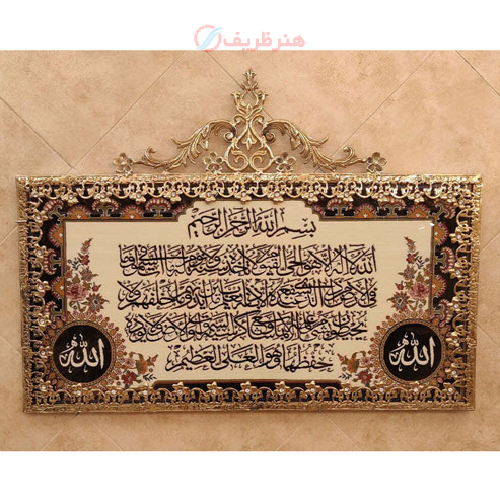 هنر ظریف
بسم الله الرحمن الرحيم
الله لا إله إلا هو الحي القيوم لا تأخذه سنة ولا نوم له ما في السموات وما
في الأرض من ذا الذي يشفع عنده إلا بإذنه يعلم ما بين أيديهم وما خلفهم ولا
يحيطون بشيء من علمه إلا بما شاء وسع كرسيه السموات والأرض ولا يؤده
حفظهما وهو العلي العظيم
الله
الله